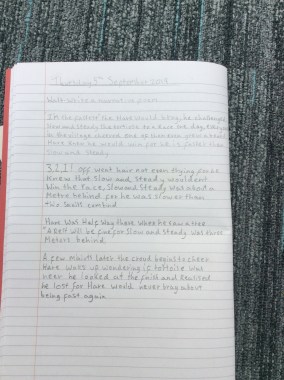 Thursday 5th September 2019
Walt: write a narrative poem
I'm the fastest the Hare would brag, he challenged
Slow and Steady the tortoise to a race one day, every
Hare knew he would win for he is faster than
Slow and Steady
3.2.1! off went hare not even trying for he
knew that Slow and Steady wouldent
Win the race, Slow and Steady was about a
Metre behind for he was slower than
Hare was Half way there when he saw a tree
"A Rest will be fine for Slow and Steady was three
Meters behind
A few minuts later the croud begins to cheer
Hare woke up wondering if tortoise was
near he looked at the finish and realised
he lost for Hare would never brag about
being fast again